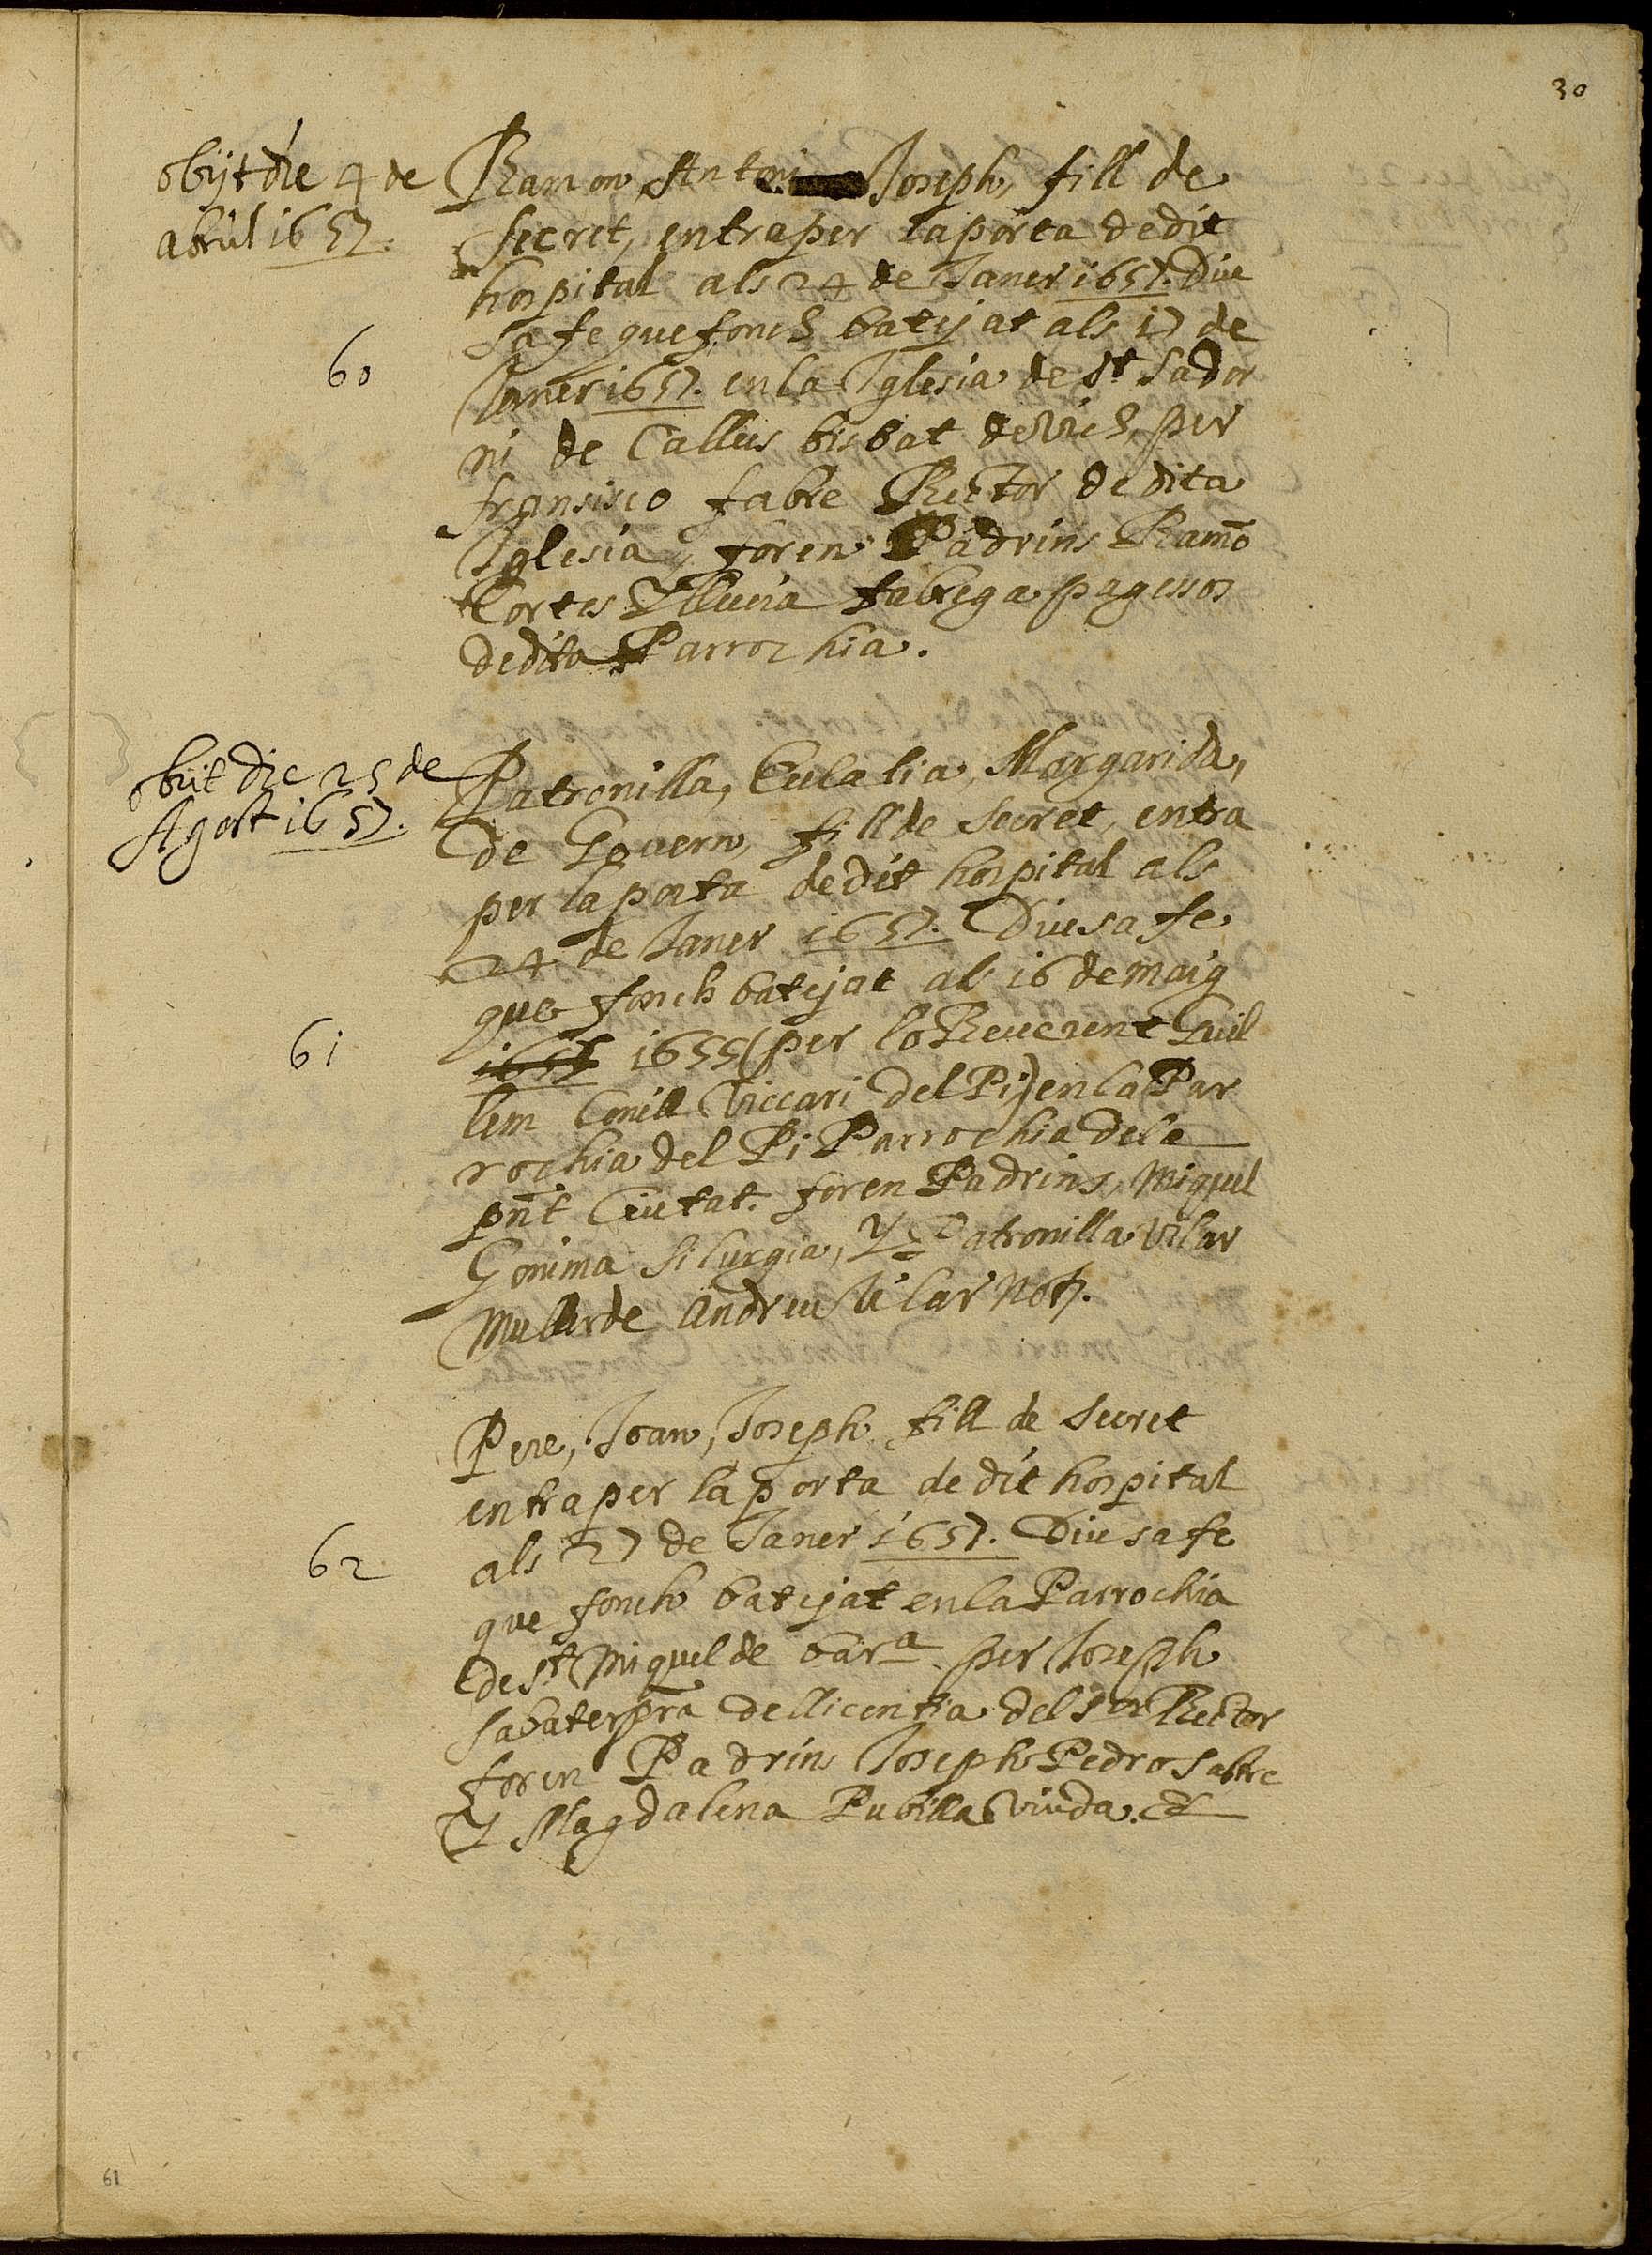 30
obijt die 4 de
abril 1657.
60
Ramon Antoni Joseph, fill de
secret, entra per la porta de dit
hospital als 24 de Janer 1657. Diu
sa fe que fonch batejat als 17 de
Janer 1657. en la Iglesia de St Sador
ni de Callus bisbat de Vich, per
fransisco fabre Rector de dita
Iglesia, foren Padrins Ramō
Cortes Y llucia fabrega pagesos
de dita Parrochia.
obiit die 25 de
Agost 1657.
61
Patronilla, Eulalia, Margarida,
de Govern, fill de secret, entra
per la porta de dit hospital als
24 de Janer 1657. Diu sa fe
que fonch batejat als 16 de maig
1655 (per lo Reverent Guil
lem Conill Viccari del Pi) en la Par
rochia del Pi Parrochia de la
pn̄t Ciutat. foren Padrins, Miquel
Gonima silurgia, Y Patronilla Vilar
Muller de Andreu Vilar Not.
62
Pere, Joan, Joseph fill de secret
entra per la porta de dit hospital
als 27 de Janer 1657. Diu sa fe
que fonch batejat en la Parrochia
de St Miquel de barª per Joseph
sabater prā de llicentia del sor Rector
foren Padrins Joseph Pedro sastre
Y Magdalena Pubilla Viuda. &
61